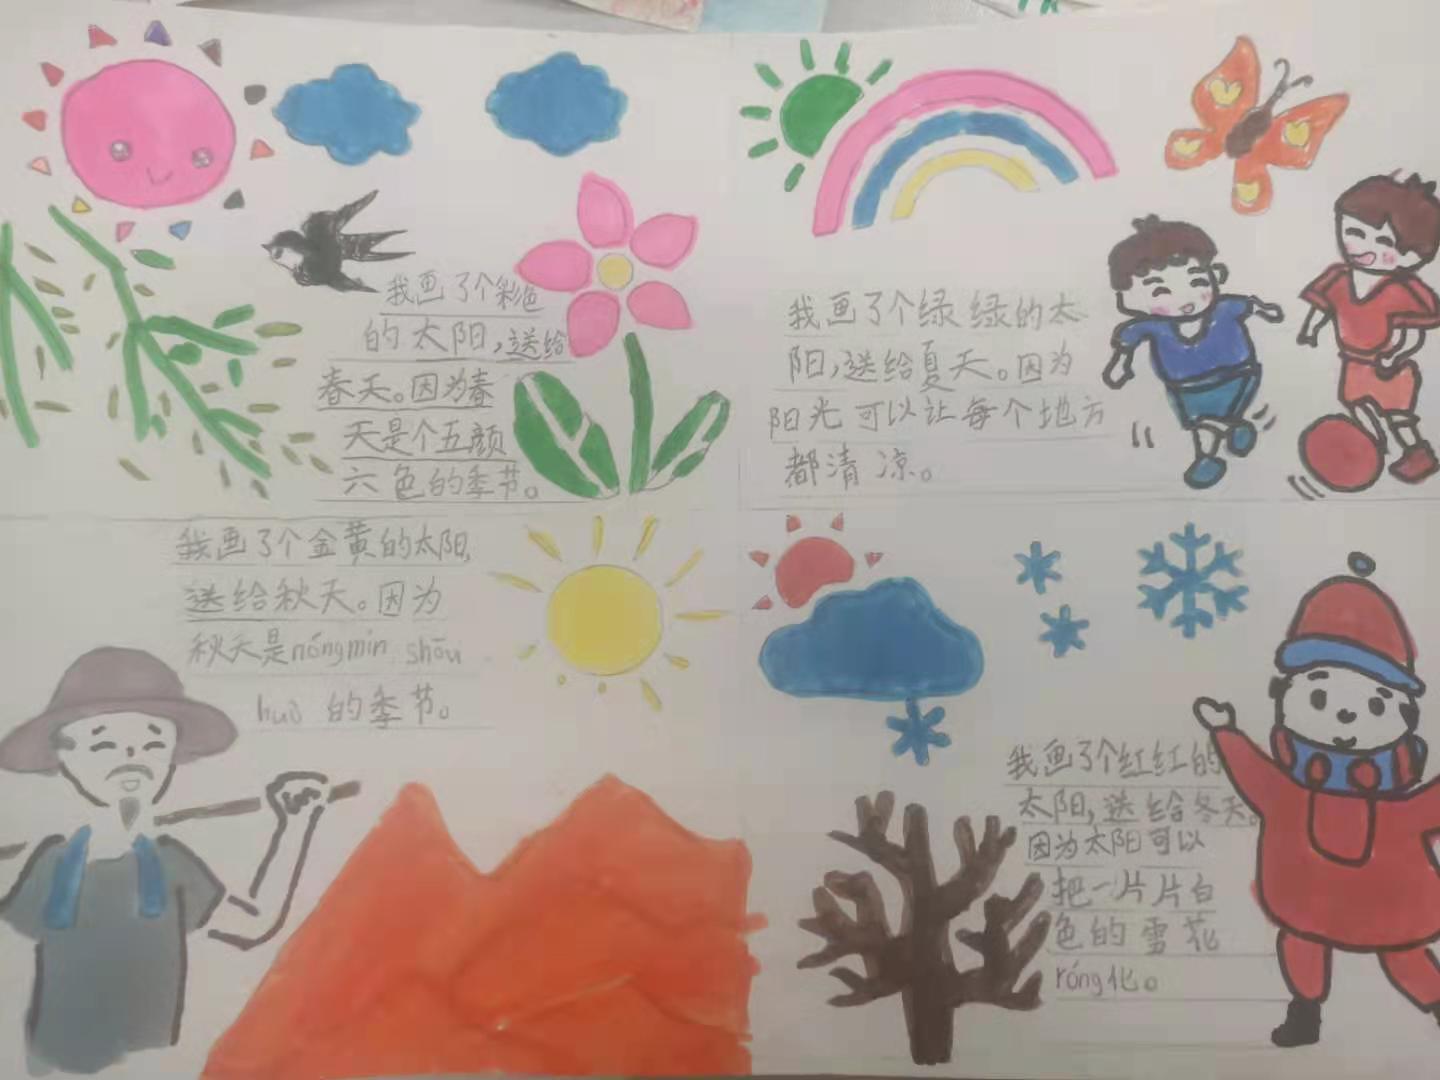 我画了个彩色
的太阳,送给
春天。因为春
天是个五颜
六色的季节。
我画了个绿绿的太
阳,送给夏天。因为
阳光可以让每个地方
都清凉。
我画了个金黄的太阳,
送给秋天。因为
秋天是nóngmín shōu
huò 的季节。
我画了个红红的
太阳,送给冬天。
因为太阳可以
把一片片白
色的雪花
róng化。